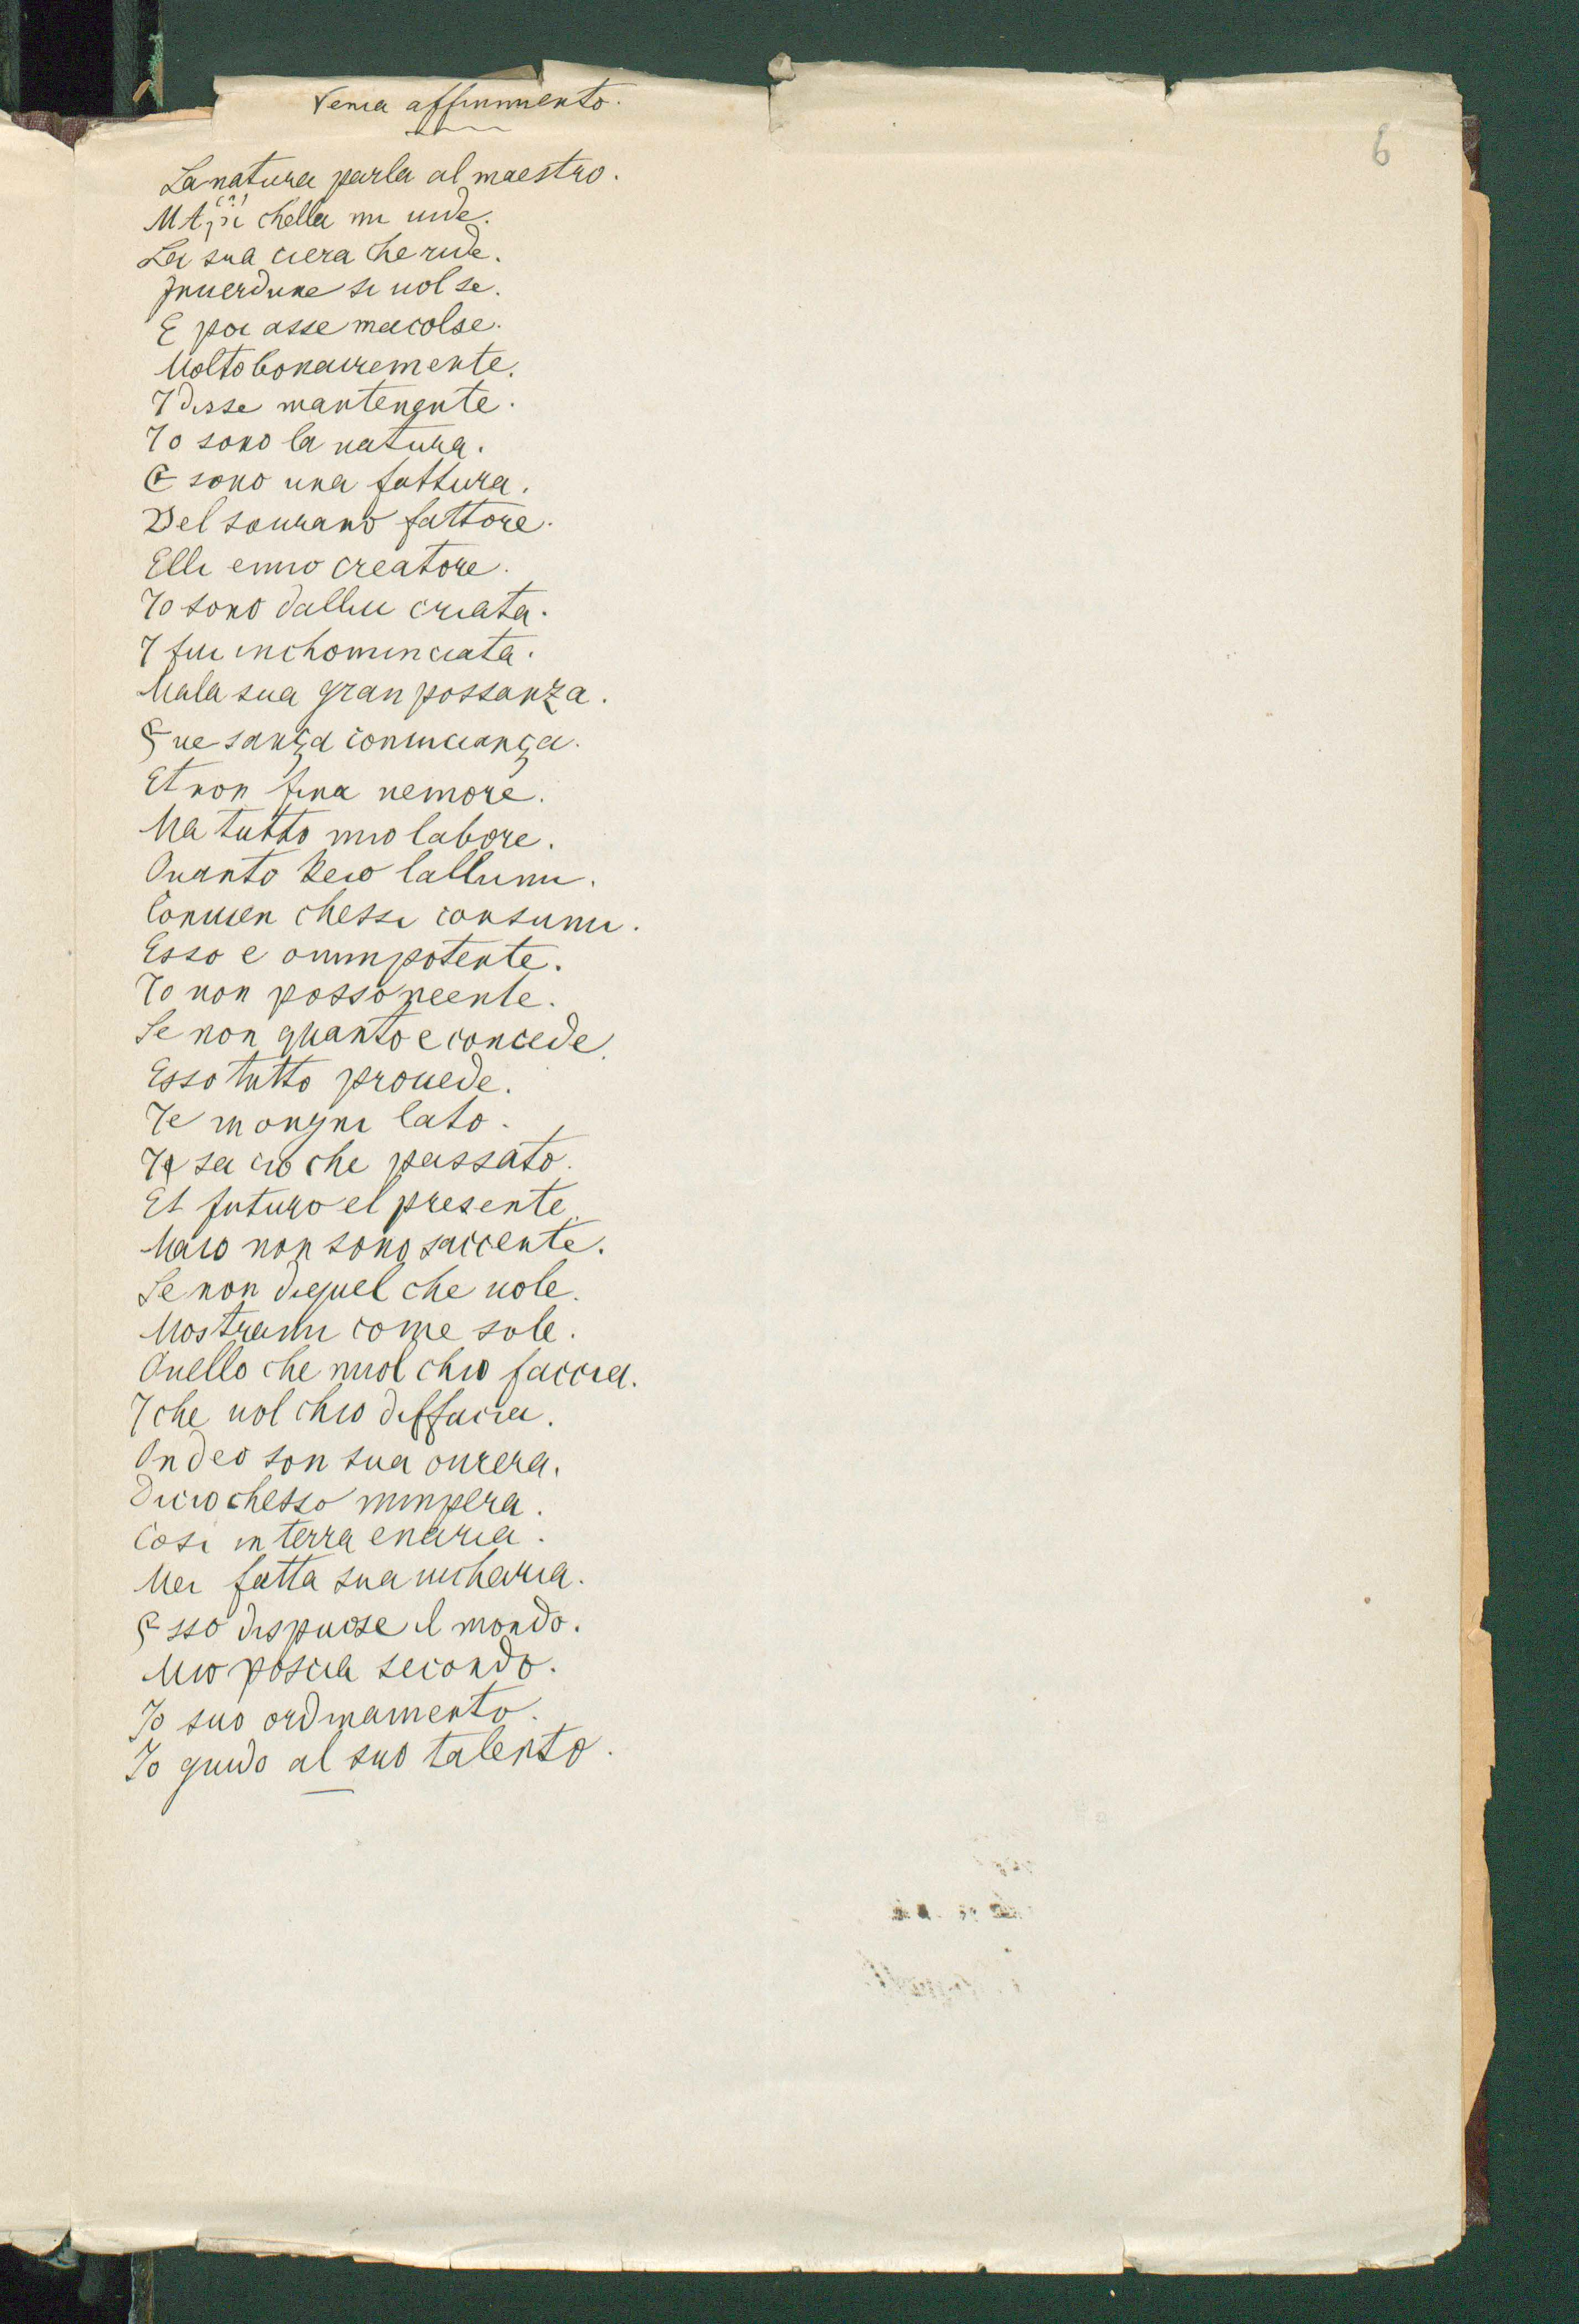 Senza affinimento.
6
La natura parla al maestro.
MA poi chella mi uide.
La sua ciera che ride.
Inuerdune si uolse.
E poi asse macolse.
Molto bonairemente.
7 disse mantenente.
Io sono la natura.
E sono una fattura.
Del sourano fattore.
Elli emio creatore.
Io sono dallui criata.
7 fui inchominciata.
Mala sua gran possanza.
Fue sança comincianza.
Et non fina nemore.
Ma tutto mio labore.
Quanto keio lallumi.
Conuien chessi consumi.
Esso e omnipotente.
Io non posso neente.
Se non quanto e concede.
Esso tutto prouede.
7e in ongni lato.
7e sa cio che passato.
El futuro el presente.
Maio non sono saccente.
Se non diquel che uole.
Mostrami come sole.
Quello che muol chio faccia.
7 che uol chio diffacia.
Ondeo son sua ourera.
Dicio chesso mimpera.
Cosi in terra enaria.
Mei fatta sua uicharia.
Esso dispuose il mondo.
Mio poscia secondo.
Io suo ordinamento.
Io guido al suo talento.